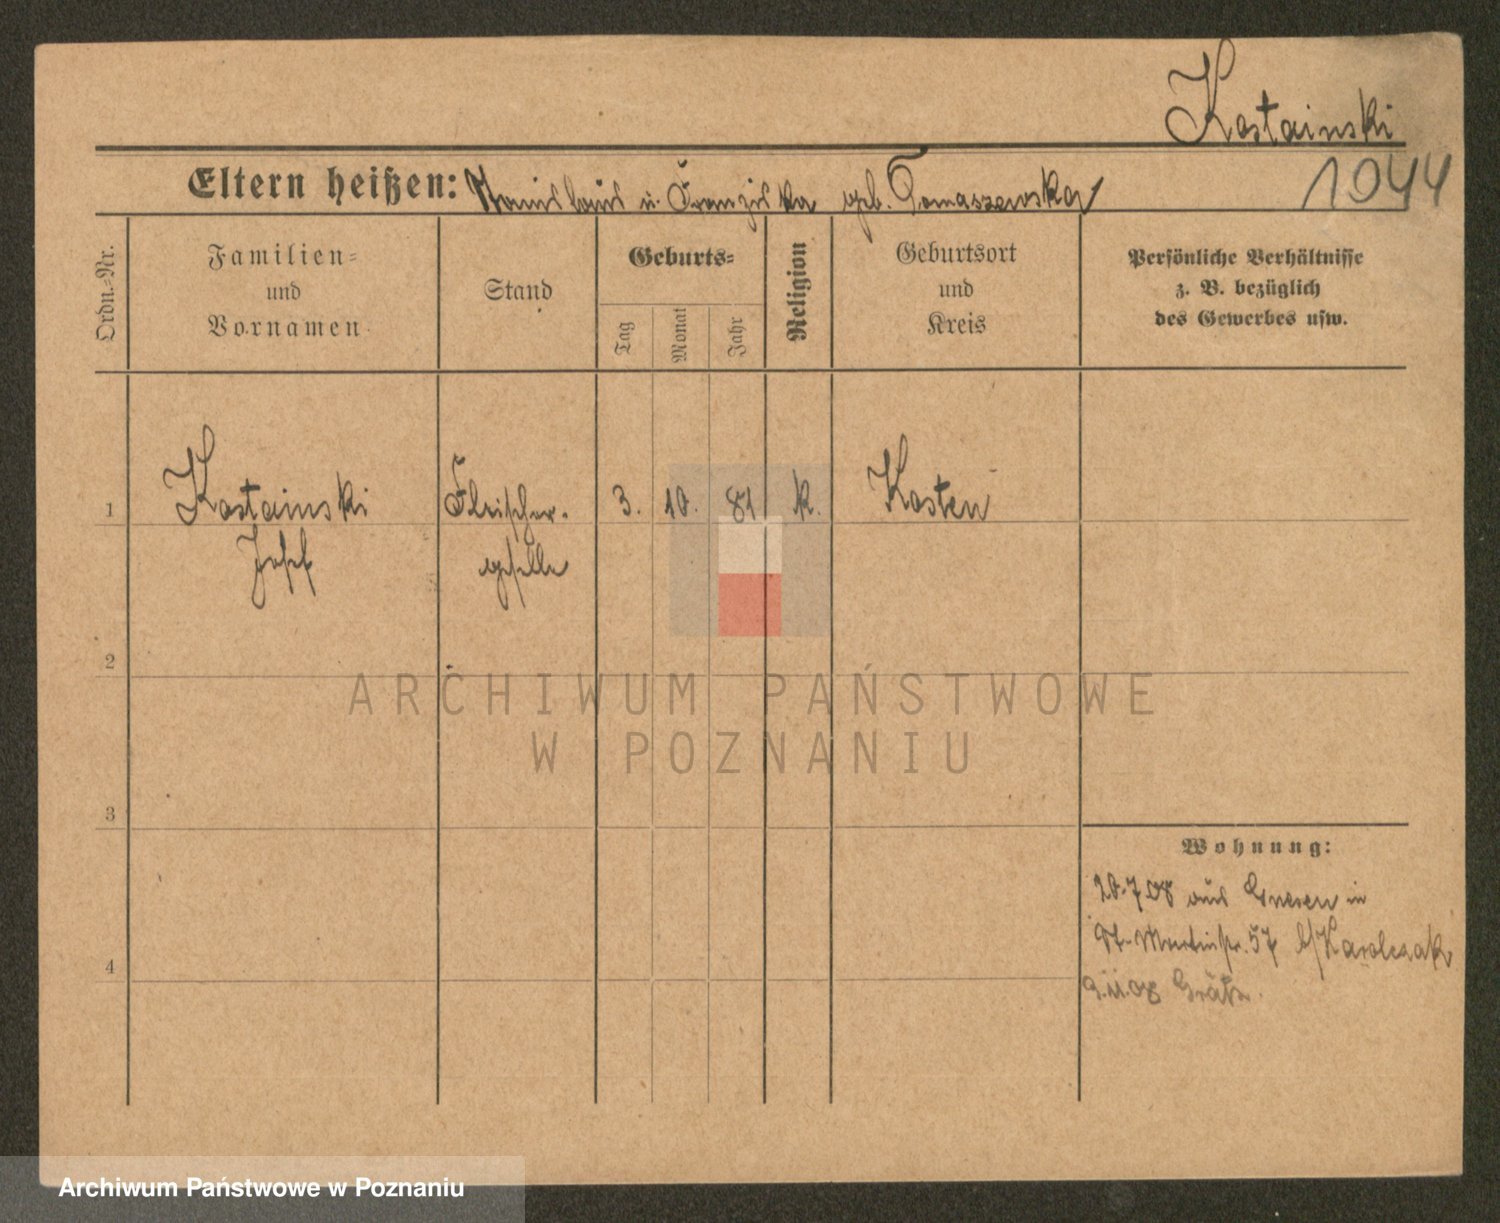 Kostainski
1944
Eltern heißen: Stanislaus u. Franziska geb. Tomaszewska
Ordn.-Nr.
Familien-
und
Vornamen
Stand
Geburts-
Tag
Monat
Jahr
Religion
Geburtsort
und
Kreis
Persönliche Verhältnisse
z. B. bezüglich
des Gewerbes usw.
1 Kostainski Fleischer- 3. 10. 81 k. Kosten
Josef geselle
2
ARCHIWUM PAŃSTWOWE
W POZNANIU
3
Wohnung:
20.7.08 aus Gnesen in
St. Martinstr. 57 b/Karolczak
4
9.11.08 Grätz.
Archiwum Państwowe w Poznaniu